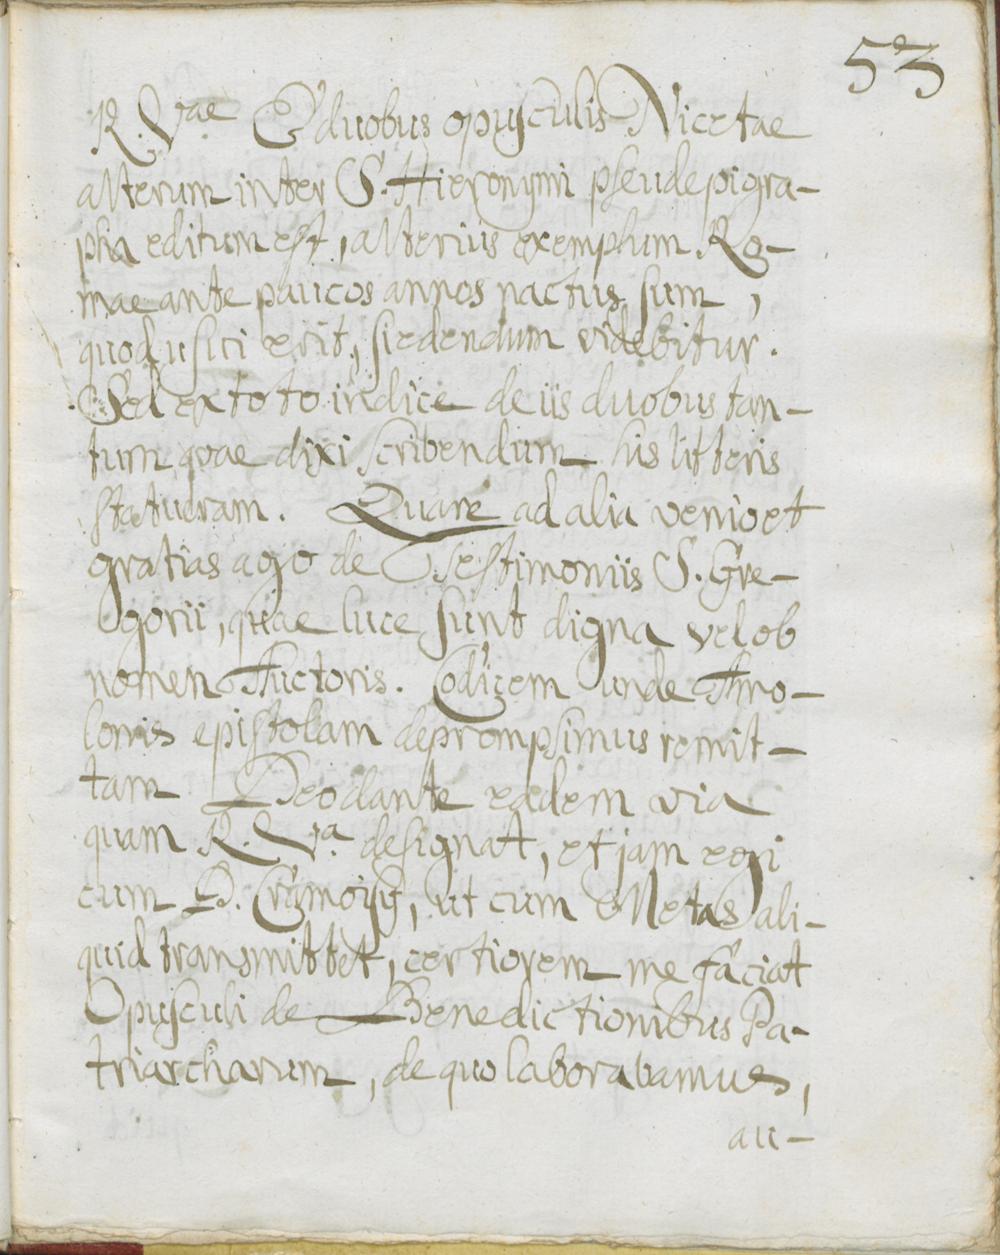 53
R. Vae E duobus opusculis Nicetae
alterum inter S. Hieronymi pseudepigra-
pha editum est, alterius exemplum Ro-
mae ante paucos annos nactus sum,
quod usui erit, si edendum videbitur.
Sed ex toto indice de iis duobus tan-
tum quae dixi scribendum his litteris
statueram. Quare ad alia venio et
gratias ago de Testimoniis S. Gre-
gorii, quae luce sunt digna vel ob
nomen Auctoris. Codicem unde Amo-
lonis epistolam deprompsimus remit-
tam Deo dante eadem via
quam R. Va designat, et jam egi
cum D. Cramoisy, ut cum Metas ali-
quid transmittet, certiorem me faciat
Opusculi de Benedictionibus Pa-
triarcharum, de quo laborabamus,
au-